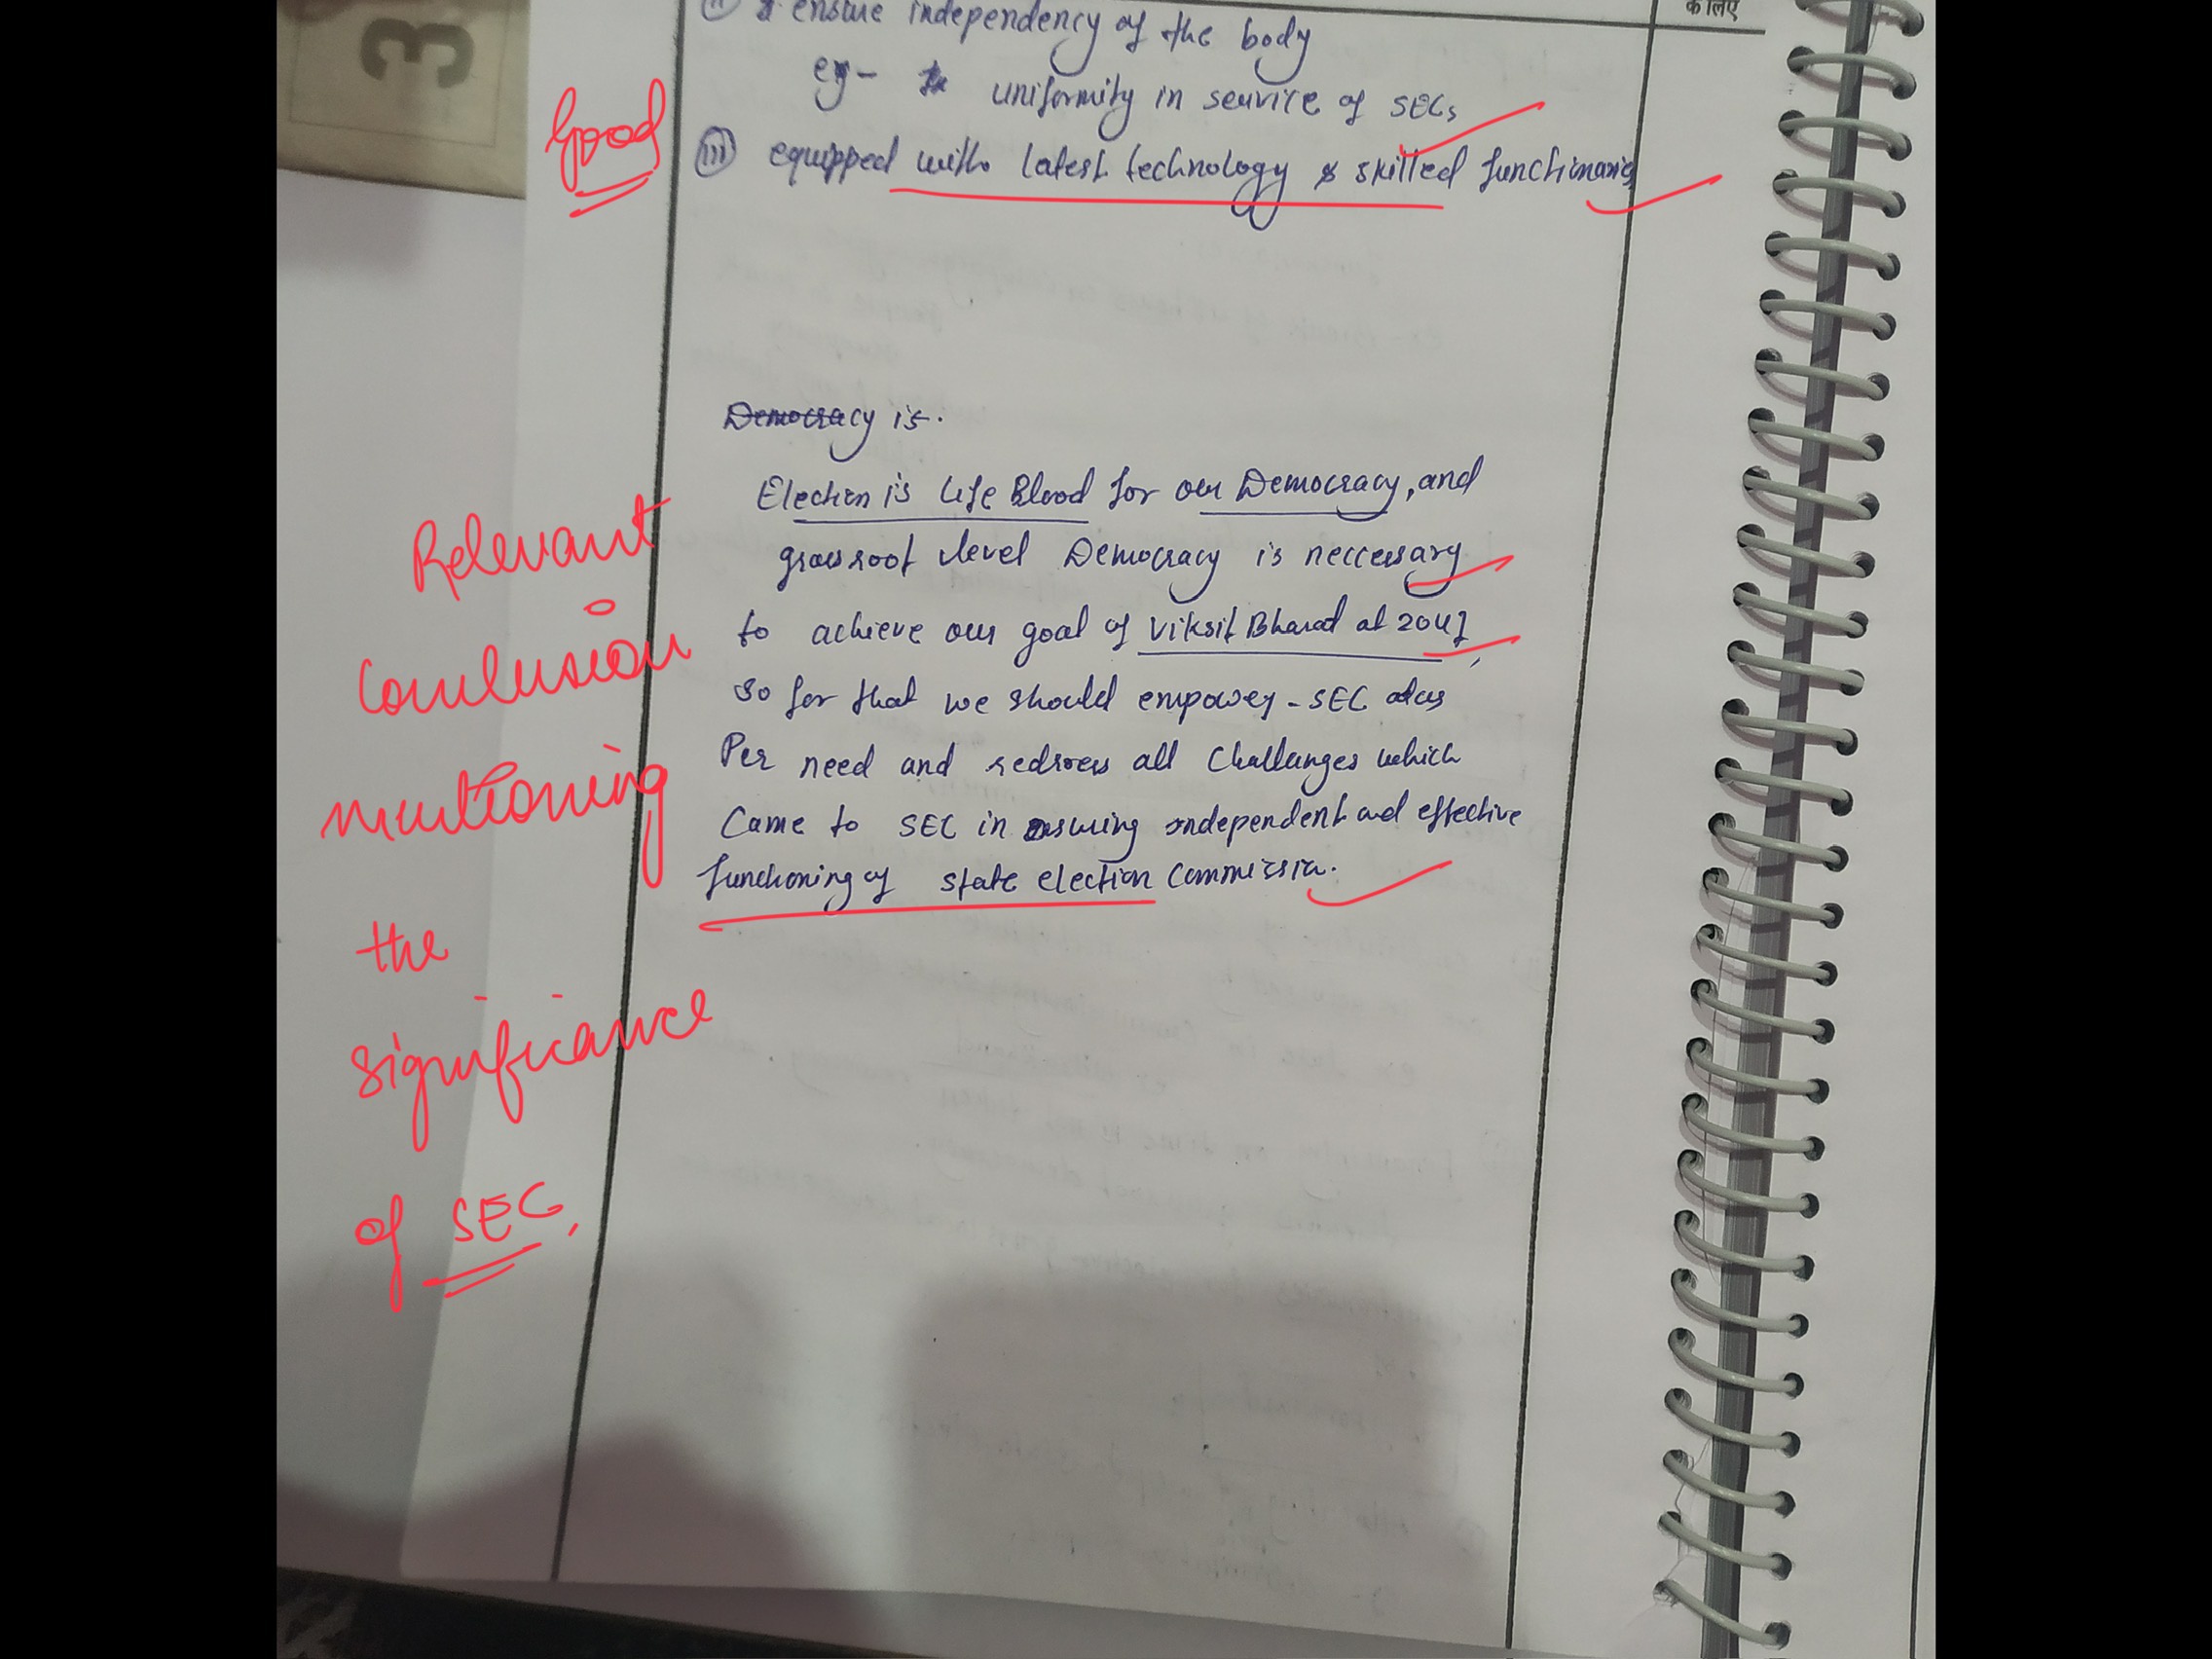 के लिए
(ii) ensure independency of the body
eg - uniformity in service of SECs
Good
(iii) equipped with latest technology & skilled functionaries
Democracy is.
Election is Life Blood for our Democracy, and
grassroot level Democracy is neccessary
to achieve our goal of Viksit Bharat at 2047,
so for that we should empower - SEC as
Per need and redress all Challenges which
Came to SEC in ensuring independent and effective
functioning of state election Commission.
Relevant
conclusion
mentioning
the
significance
of SEC.
3